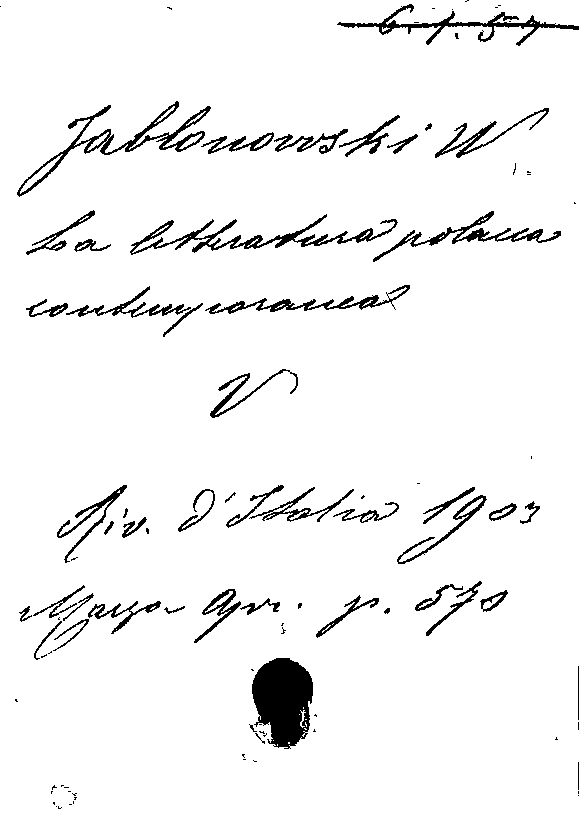 6. 1. 57
Jablonowski W.
La letteratura polacca
contemporanea
V
Riv. d'Italia 1903
Marzo Apr. p. 570